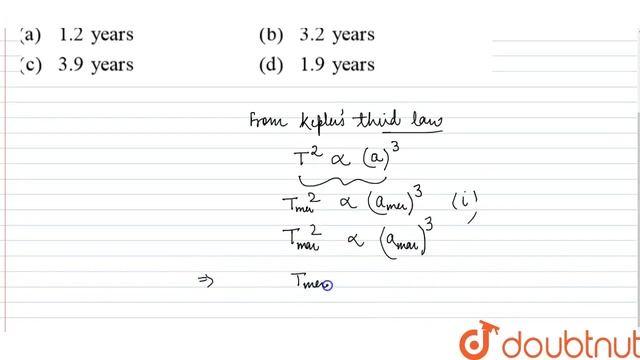 (a) 1.2 years (b) 3.2 years
(c) 3.9 years (d) 1.9 years
From Kepler's third law
T² ∝ (a)³
Tmer² ∝ (amer)³ (i)
Tmar² ∝ (amar)³
⇒ Tmer
doubtnut